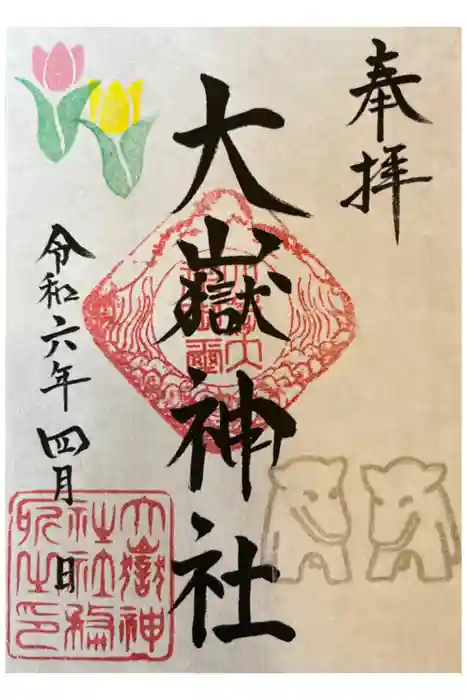 奉拝
大嶽神社
令和六年四月 日
大嶽神
社社務
所之印